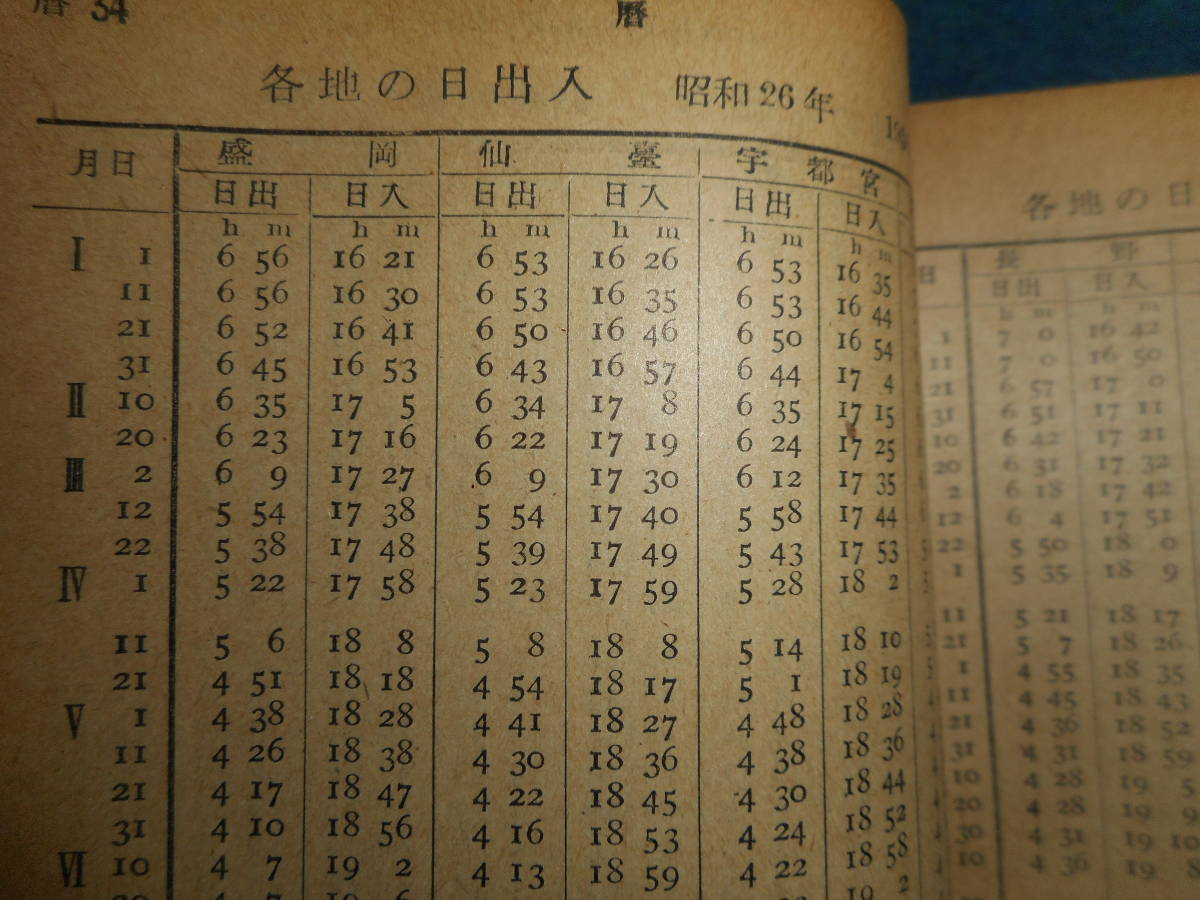 暦 34 暦
各地の日出入 昭和26年
月日 盛岡 仙臺 宇都宮
日出 日入 日出 日入 日出 日入
h m h m h m h m h m h m
I 1 6 56 16 21 6 53 16 26 6 53 16 35
11 6 56 16 30 6 53 16 35 6 53 16 44
21 6 52 16 41 6 50 16 46 6 50 16 54
31 6 45 16 53 6 43 16 57 6 44 17 4
II 10 6 35 17 5 6 34 17 8 6 35 17 15
20 6 23 17 16 6 22 17 19 6 24 17 25
III 2 6 9 17 27 6 9 17 30 6 12 17 35
12 5 54 17 38 5 54 17 40 5 58 17 44
22 5 38 17 48 5 39 17 49 5 43 17 53
IV 1 5 22 17 58 5 23 17 59 5 28 18 2
11 5 6 18 8 5 8 18 8 5 14 18 10
21 4 51 18 18 4 54 18 17 5 1 18 19
V 1 4 38 18 28 4 41 18 27 4 48 18 28
11 4 26 18 38 4 30 18 36 4 38 18 36
21 4 17 18 47 4 22 18 45 4 30 18 44
31 4 10 18 56 4 16 18 53 4 24 18 52
VI 10 4 7 19 2 4 13 18 59 4 22 18 58
各地の日
日 長野
日出 日入
h m h m
1 7 0 16 42
11 7 0 16 50
21 6 57 17 0
31 6 51 17 11
10 6 42 17 21
20 6 31 17 32
2 6 18 17 42
12 6 4 17 51
22 5 50 18 0
1 5 35 18 9
11 5 21 18 17
21 5 7 18 26
1 4 55 18 35
11 4 45 18 43
21 4 36 18 52
31 4 31 18 59
10 4 28 19 5
20 4 28 19 9
30 4 31 19 10
10 4 36 19 8